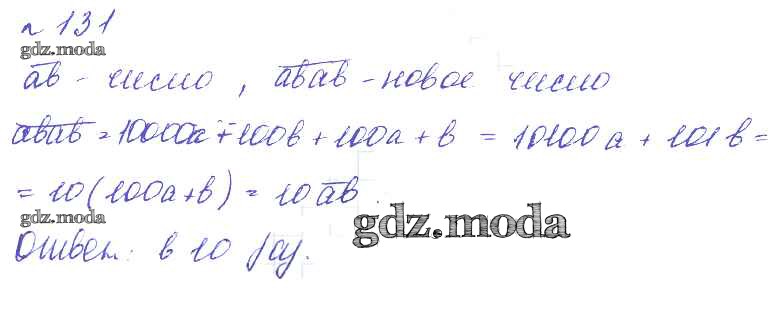 n 131
gdz.moda
ab - число , abab - новое число
abab = 10000a + 100b + 100a + b = 10100a + 101b =
= 10(100a+b) = 10ab.
gdz.moda
gdz.moda
Ответ: в 10 раз.